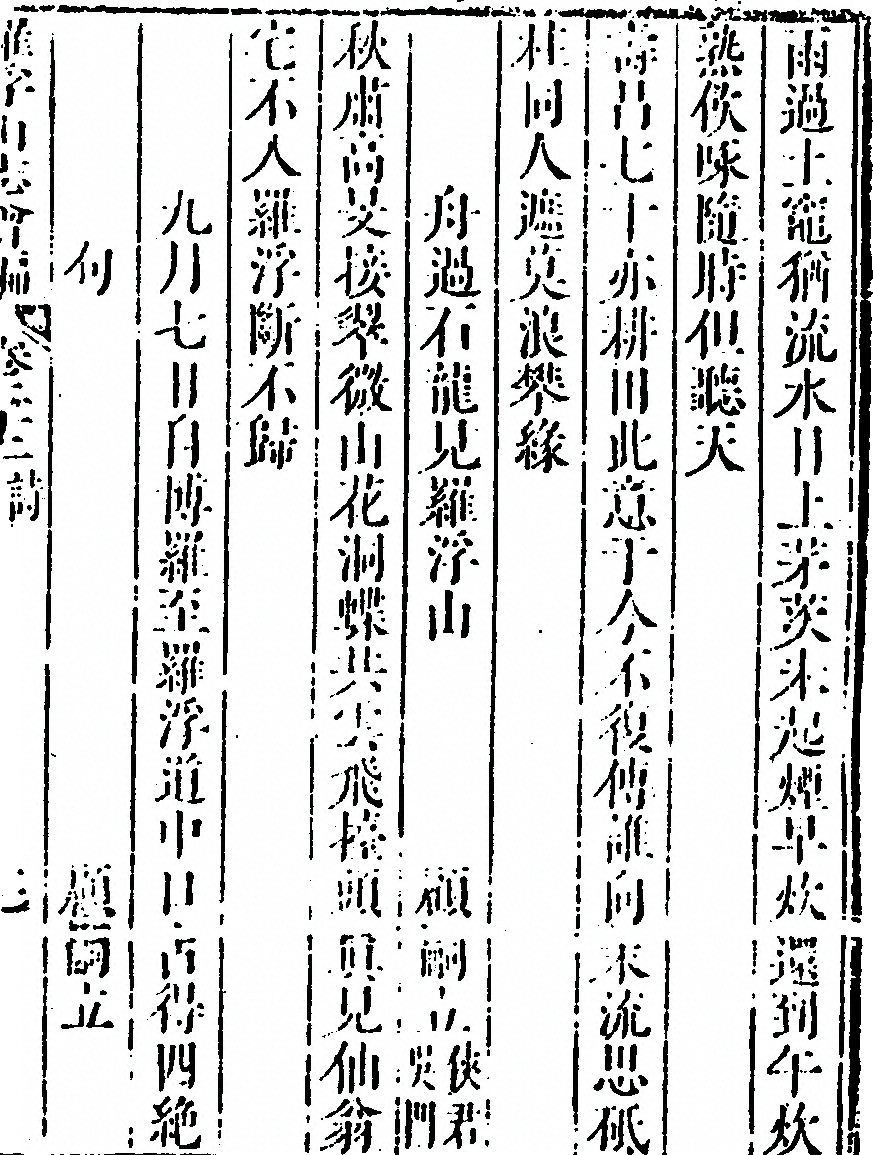 雨過土竈猶流水日上茅茨未起煙早炊還到午炊
熟飲啄隨時但聽天
壽昌七十亦耕田此意于今不復傳誰向末流思砥
柱同人遮莫浪攀緣
舟過石龍見羅浮山 顧嗣立俠君吳門
秋肅高旻接翠微山花洞蝶共雲飛擡頭眞見仙翁
宅不入羅浮斷不歸
九月七日自博羅至羅浮道中口占得四絶
句 顧嗣立
卷之三詩 三